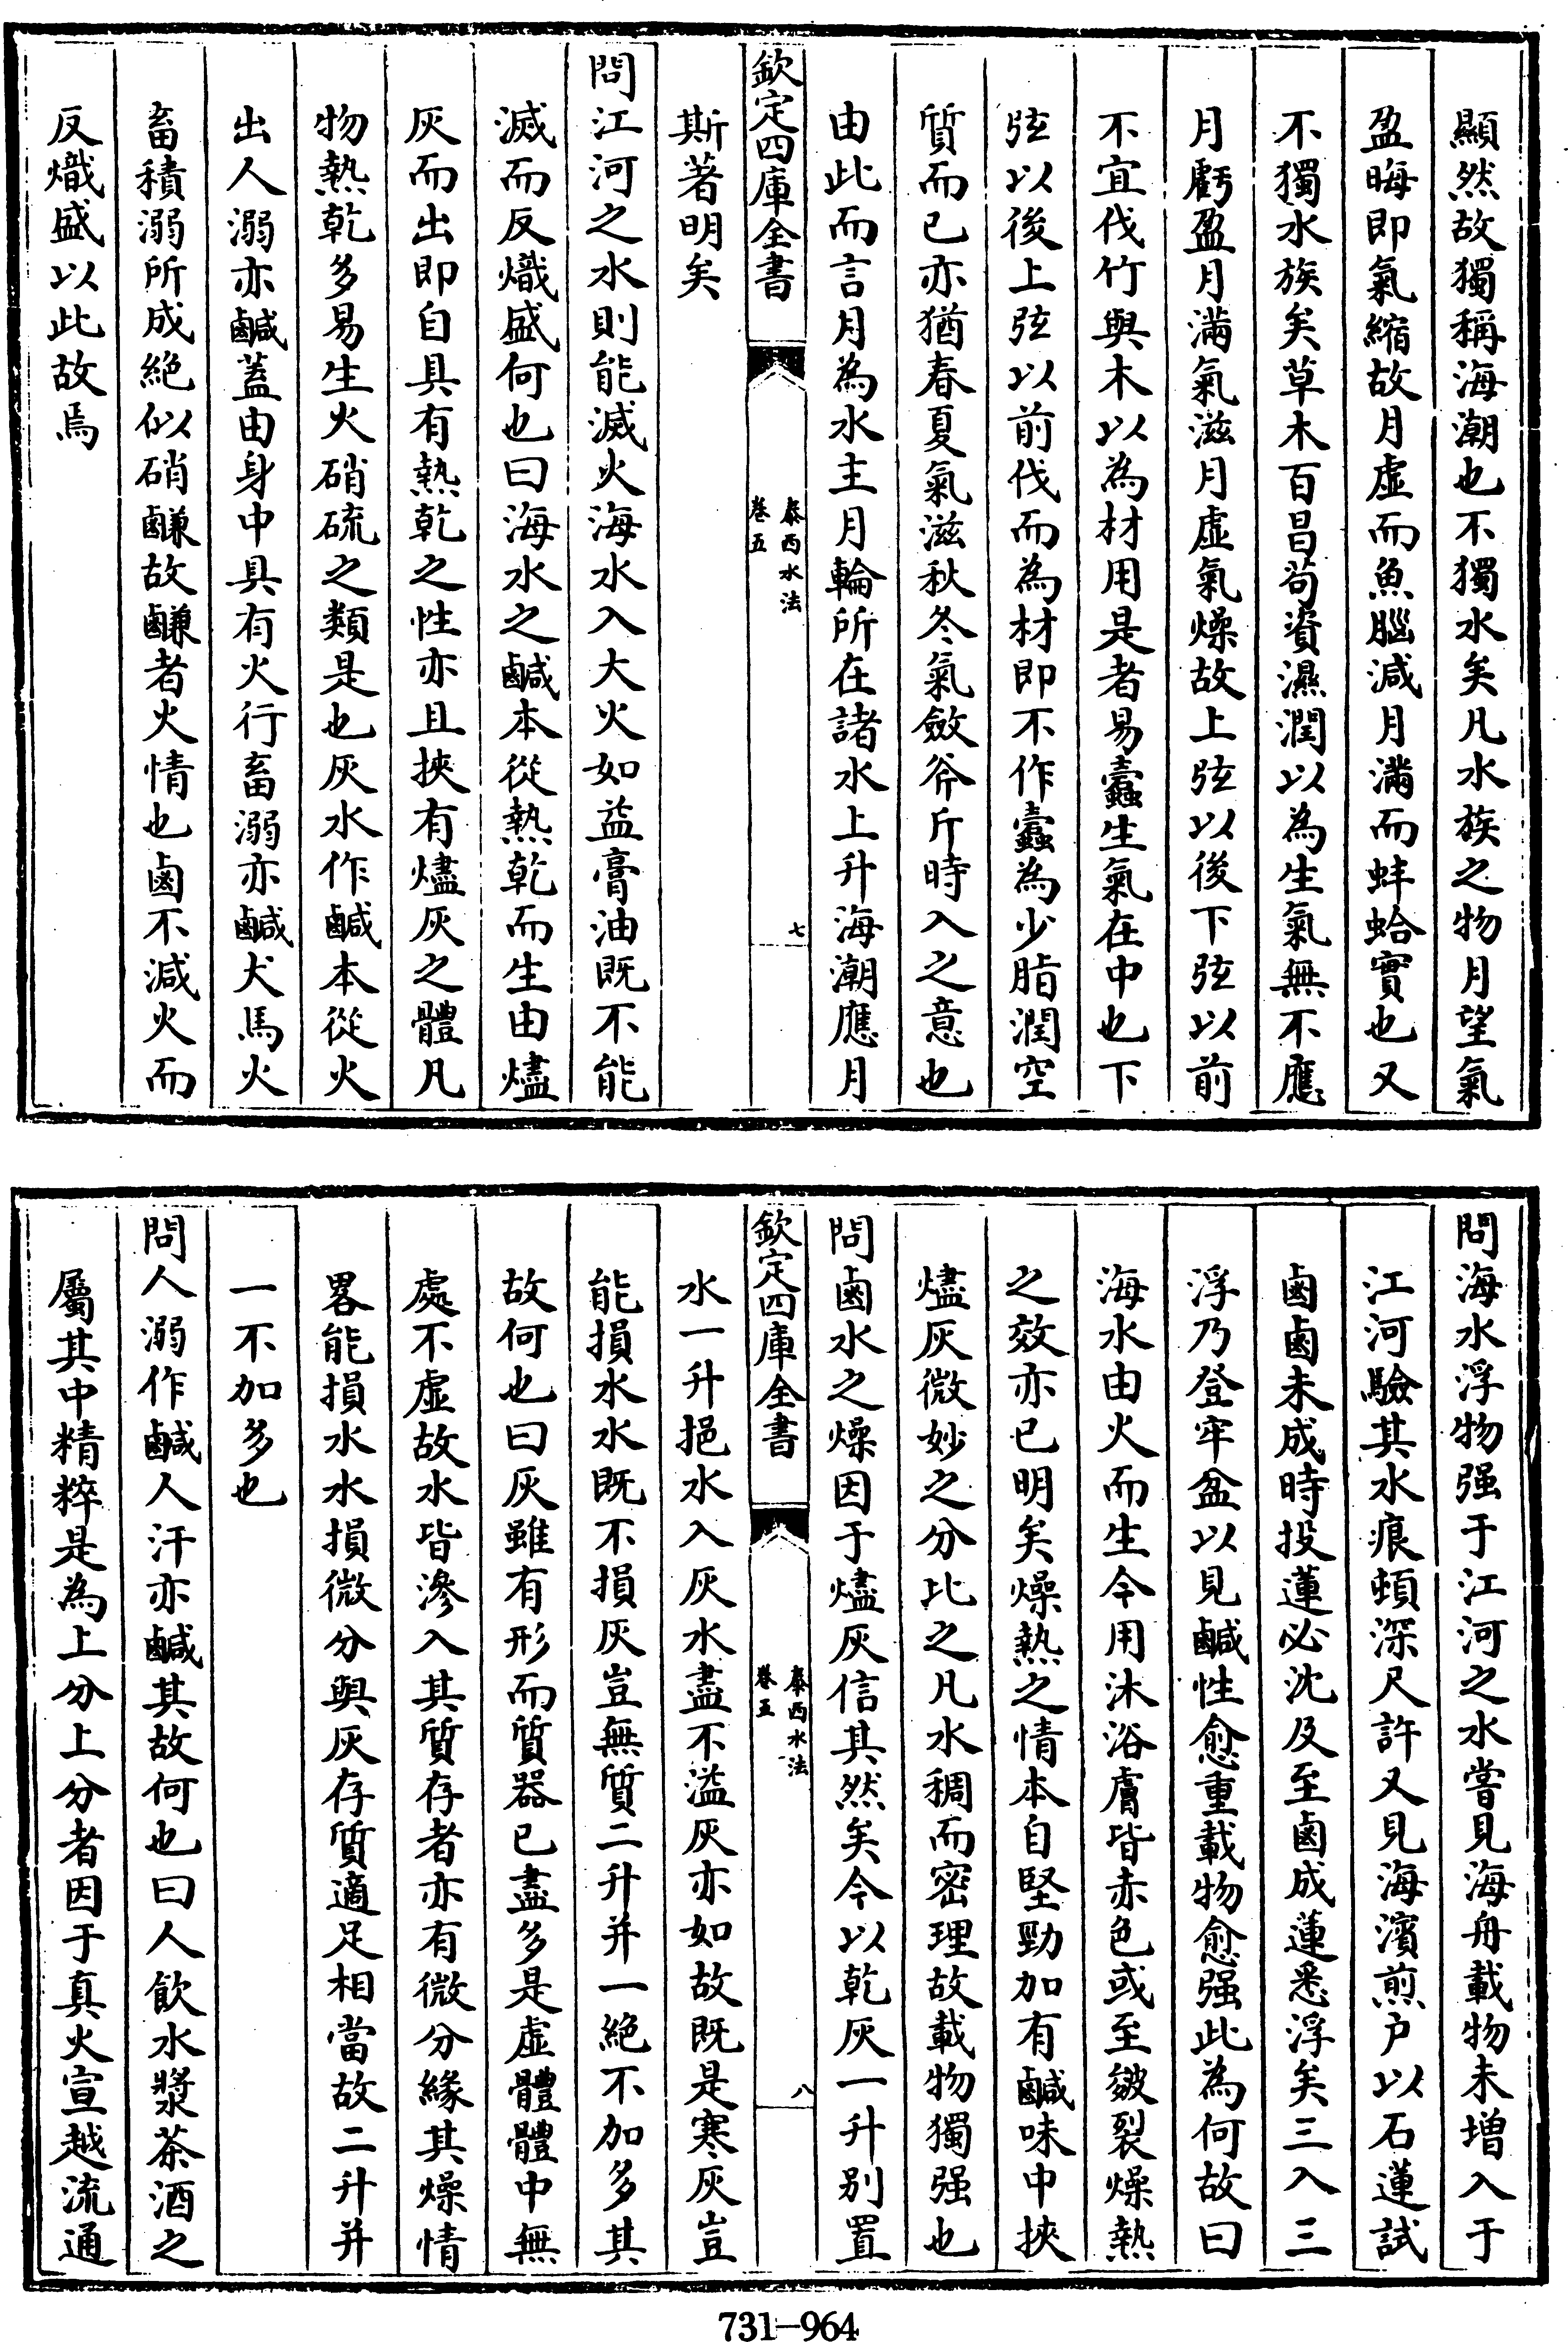 顯然故獨稱海潮也不獨水矣凡水族之物月望氣
盈晦即氣縮故月虛而魚腦減月滿而蚌蛤實也又
不獨水族矣草木百昌茍資濕潤以為生氣無不應
月虧盈月滿氣滋月虛氣燥故上弦以後下弦以前
不宜伐竹與木以為材用是者易蠹生氣在中也下
弦以後上弦以前伐而為材即不作蠹為少脂潤空
質而已亦猶春夏氣滋秋冬氣斂斧斤時入之意也
由此而言月為水主月輪所在諸水上升海潮應月
欽定四庫全書
泰西水法
卷五
七
斯著明矣
問江河之水則能滅火海水入大火如益膏油既不能
滅而反熾盛何也曰海水之鹹本從熱乾而生由燼
灰而出即自具有熱乾之性亦且挾有燼灰之體凡
物熱乾多易生火硝硫之類是也灰水作鹹本從火
出人溺亦鹹蓋由身中具有火行畜溺亦鹹犬馬火
畜積溺所成絶似硝鹻故鹻者火情也鹵不減火而
反熾盛以此故焉
問海水浮物强于江河之水嘗見海舟載物未增入于
江河驗其水痕頓深尺許又見海濱煎户以石蓮試
鹵鹵未成時投蓮必沈及至鹵成蓮悉浮矣三入三
浮乃登牢盆以見鹹性愈重載物愈强此為何故曰
海水由火而生今用沐浴膚皆赤色或至皴裂燥熱
之效亦已明矣燥熱之情本自堅勁加有鹹味中挾
燼灰微妙之分比之凡水稠而密理故載物獨强也
問鹵水之燥因于燼灰信其然矣今以乾灰一升别置
欽定四庫全書
泰西水法
卷五
八
水一升挹水入灰水盡不溢灰亦如故既是寒灰豈
能損水水既不損灰豈無質二升并一絶不加多其
故何也曰灰雖有形而質器已盡多是虛體體中無
處不虛故水皆滲入其質存者亦有微分緣其燥情
畧能損水水損微分與灰存質適足相當故二升并
一不加多也
問人溺作鹹人汗亦鹹其故何也曰人飲水漿茶酒之
屬其中精粹是為上分上分者因于真火宣越流通
731-964